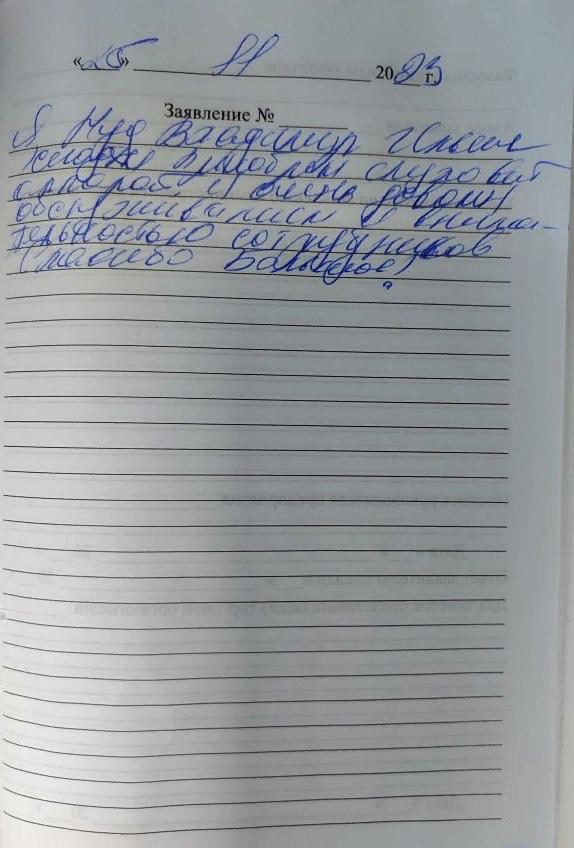 «25» 11 2023 г.
Заявление №
Я Владимир Ильич
приобрел слуховой
аппарат и очень доволен
обслуживанием и внима-
тельностью сотрудников
Спасибо Большое